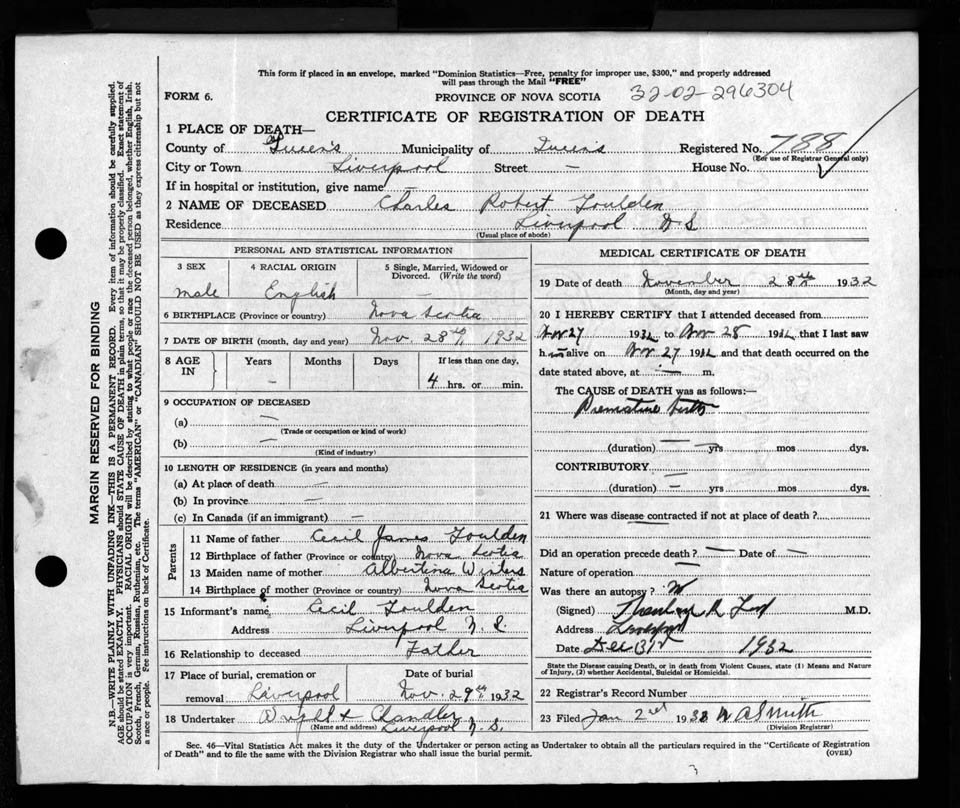 This form if placed in an envelope, marked "Dominion Statistics—Free, penalty for improper use, $300," and properly addressed
will pass through the Mail "FREE"
FORM 6.
PROVINCE OF NOVA SCOTIA
32-02-296304
CERTIFICATE OF REGISTRATION OF DEATH
1 PLACE OF DEATH—
County of Queen's Municipality of Queens Registered No. 788
(For use of Registrar General only)
City or Town Liverpool Street — House No.
If in hospital or institution, give name —
2 NAME OF DECEASED Charles Robert Foulden
Residence Liverpool N S
(Usual place of abode)
PERSONAL AND STATISTICAL INFORMATION
3 SEX 4 RACIAL ORIGIN 5 Single, Married, Widowed or
Divorced. (Write the word)
male English —
6 BIRTHPLACE (Province or country) Nova Scotia
7 DATE OF BIRTH (month, day and year) Nov. 28th 1932
8 AGE IN Years Months Days If less than one day,
— 4 hrs. or min.
9 OCCUPATION OF DECEASED
(a) —
(Trade or occupation or kind of work)
(b) —
(Kind of industry)
10 LENGTH OF RESIDENCE (in years and months)
(a) At place of death —
(b) In province —
(c) In Canada (if an immigrant) —
Parents
11 Name of father Cecil James Foulden
12 Birthplace of father (Province or country) Nova Scotia
13 Maiden name of mother Albertina Winters
14 Birthplace of mother (Province or country) Nova Scotia
15 Informant's name Cecil Foulden
Address Liverpool N. S.
16 Relationship to deceased Father
17 Place of burial, cremation or Date of burial
removal Liverpool Nov. 29th 1932
18 Undertaker Chandler
(Name and address) Liverpool N. S.
MEDICAL CERTIFICATE OF DEATH
19 Date of death November 28th 1932
(Month, day and year)
20 I HEREBY CERTIFY that I attended deceased from
Nov 27 1932 to Nov 28 1932 that I last saw
him alive on Nov 27 1932 and that death occurred on the
date stated above, at — m.
The CAUSE of DEATH was as follows:—
Premature birth
(duration) — yrs mos dys.
CONTRIBUTORY —
(duration) — yrs mos dys.
21 Where was disease contracted if not at place of death?
Did an operation precede death? — Date of —
Nature of operation —
Was there an autopsy?
(Signed) M.D.
Address Liverpool
Date Dec 31 1932
State the Disease causing Death, or in death from Violent Causes, state (1) Means and Nature
of Injury, (2) whether Accidental, Suicidal or Homicidal.
22 Registrar's Record Number
23 Filed Jan 2nd 1933 Smith
(Division Registrar)
Sec. 46—Vital Statistics Act makes it the duty of the Undertaker or person acting as Undertaker to obtain all the particulars required in the "Certificate of Registration
of Death" and to file the same with the Division Registrar who shall issue the burial permit.
(OVER)
3
MARGIN RESERVED FOR BINDING
N.B.—WRITE PLAINLY WITH UNFADING INK—THIS IS A PERMANENT RECORD. Every item of information should be carefully supplied.
AGE should be stated EXACTLY. PHYSICIANS should STATE CAUSE OF DEATH in plain terms, so that it may be properly classified. Exact statement of
OCCUPATION is very important. RACIAL ORIGIN will be described by stating to what people or race the deceased person belonged, whether English, Irish,
Scotch, French, German, Russian, Ruthenian, etc. The terms "AMERICAN" or "CANADIAN" SHOULD NOT BE USED as they express citizenship but not
a race or people. Fee instructions on back of Certificate.